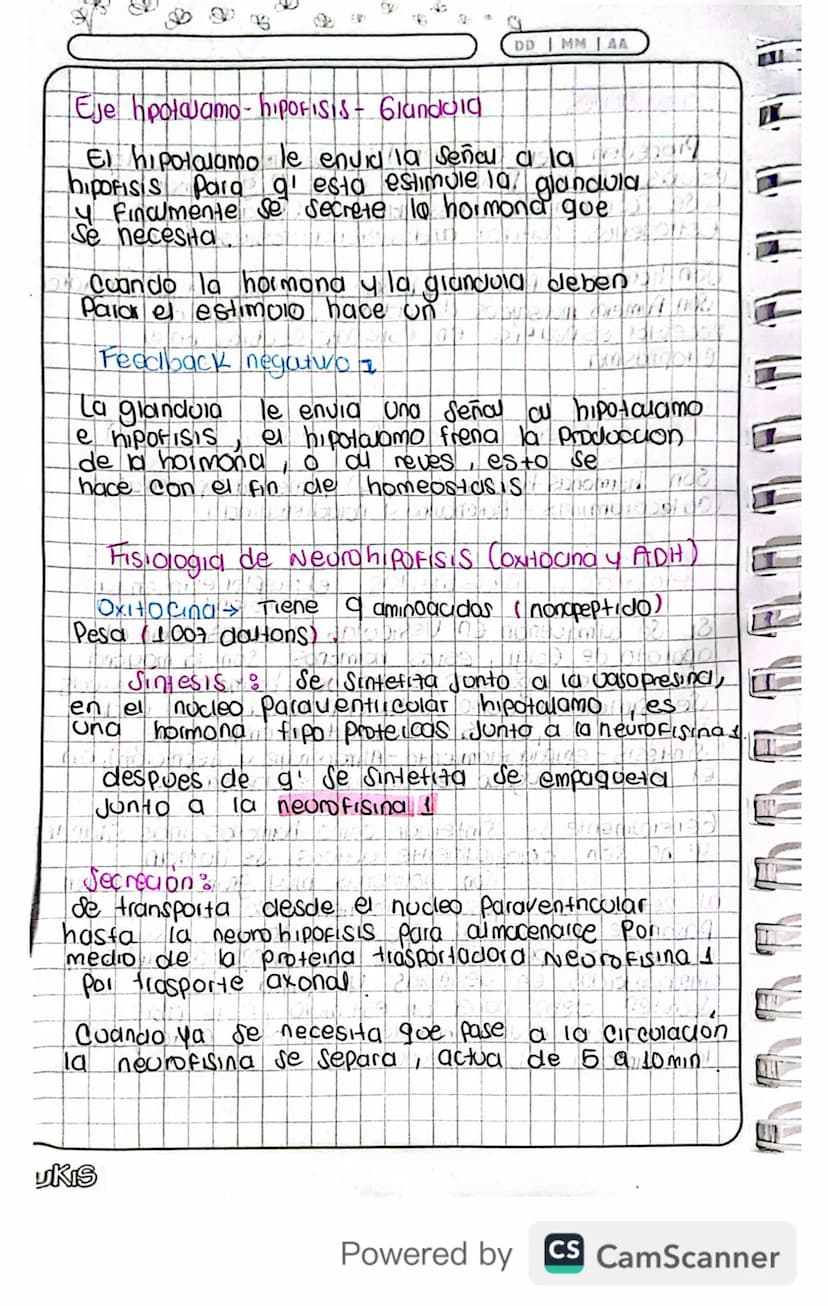 DD | MM | AA
Eje hpotalamo - hipofisis - Glandula
El hipotalamo le envia la señal a la
hipofisis para q' esta estimule la glandula
y finalmente se secrete la hormona que
se necesita.
Cuando la hormona y la glandula deben
Parar el estimulo hace un
Feedback negativo
La glandula le envia una señal al hipotalamo
e hipofisis, el hipotalamo frena la produccion
de la hormona, o al reves, esto se
hace con el fin de homeostasis
Fisiologia de Neurohipofisis (oxitocina y ADH)
Oxitocina → Tiene 9 aminoacidos (nonapeptido)
Pesa (1007 daltons).
Sintesis: Se sintetita junto a la vasopresina,
en el nucleo paraventricular hipotalamo, es
una hormona tipo proteicas junto a la neurofisina 1.
despues de q' se sintetita se empaqueta
junto a la neurofisina 1
Secreción:
de transporta desde el nucleo Paraventricular
hasta la neurohipofisis para almacenarce Por
medio de la proteina trasportadora Neurofisina 1
por trasporte axonal.
Cuando ya se necesita que pase a la circulación
la neurofisina se separa, actua de 5 a 10 min
UKIS
Powered by CS CamScanner